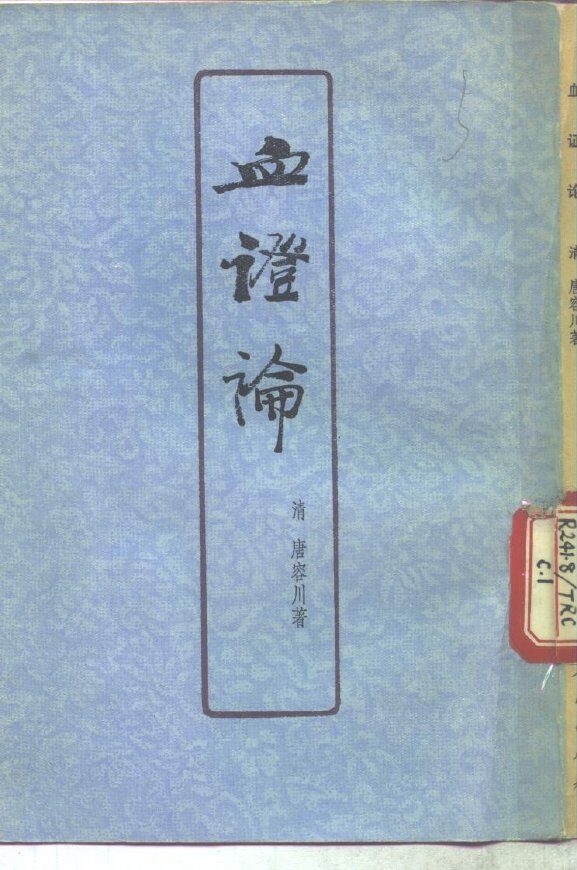 血證論
清 唐容川著
血证论 清 唐容川著
R241.8/TRC
C.1